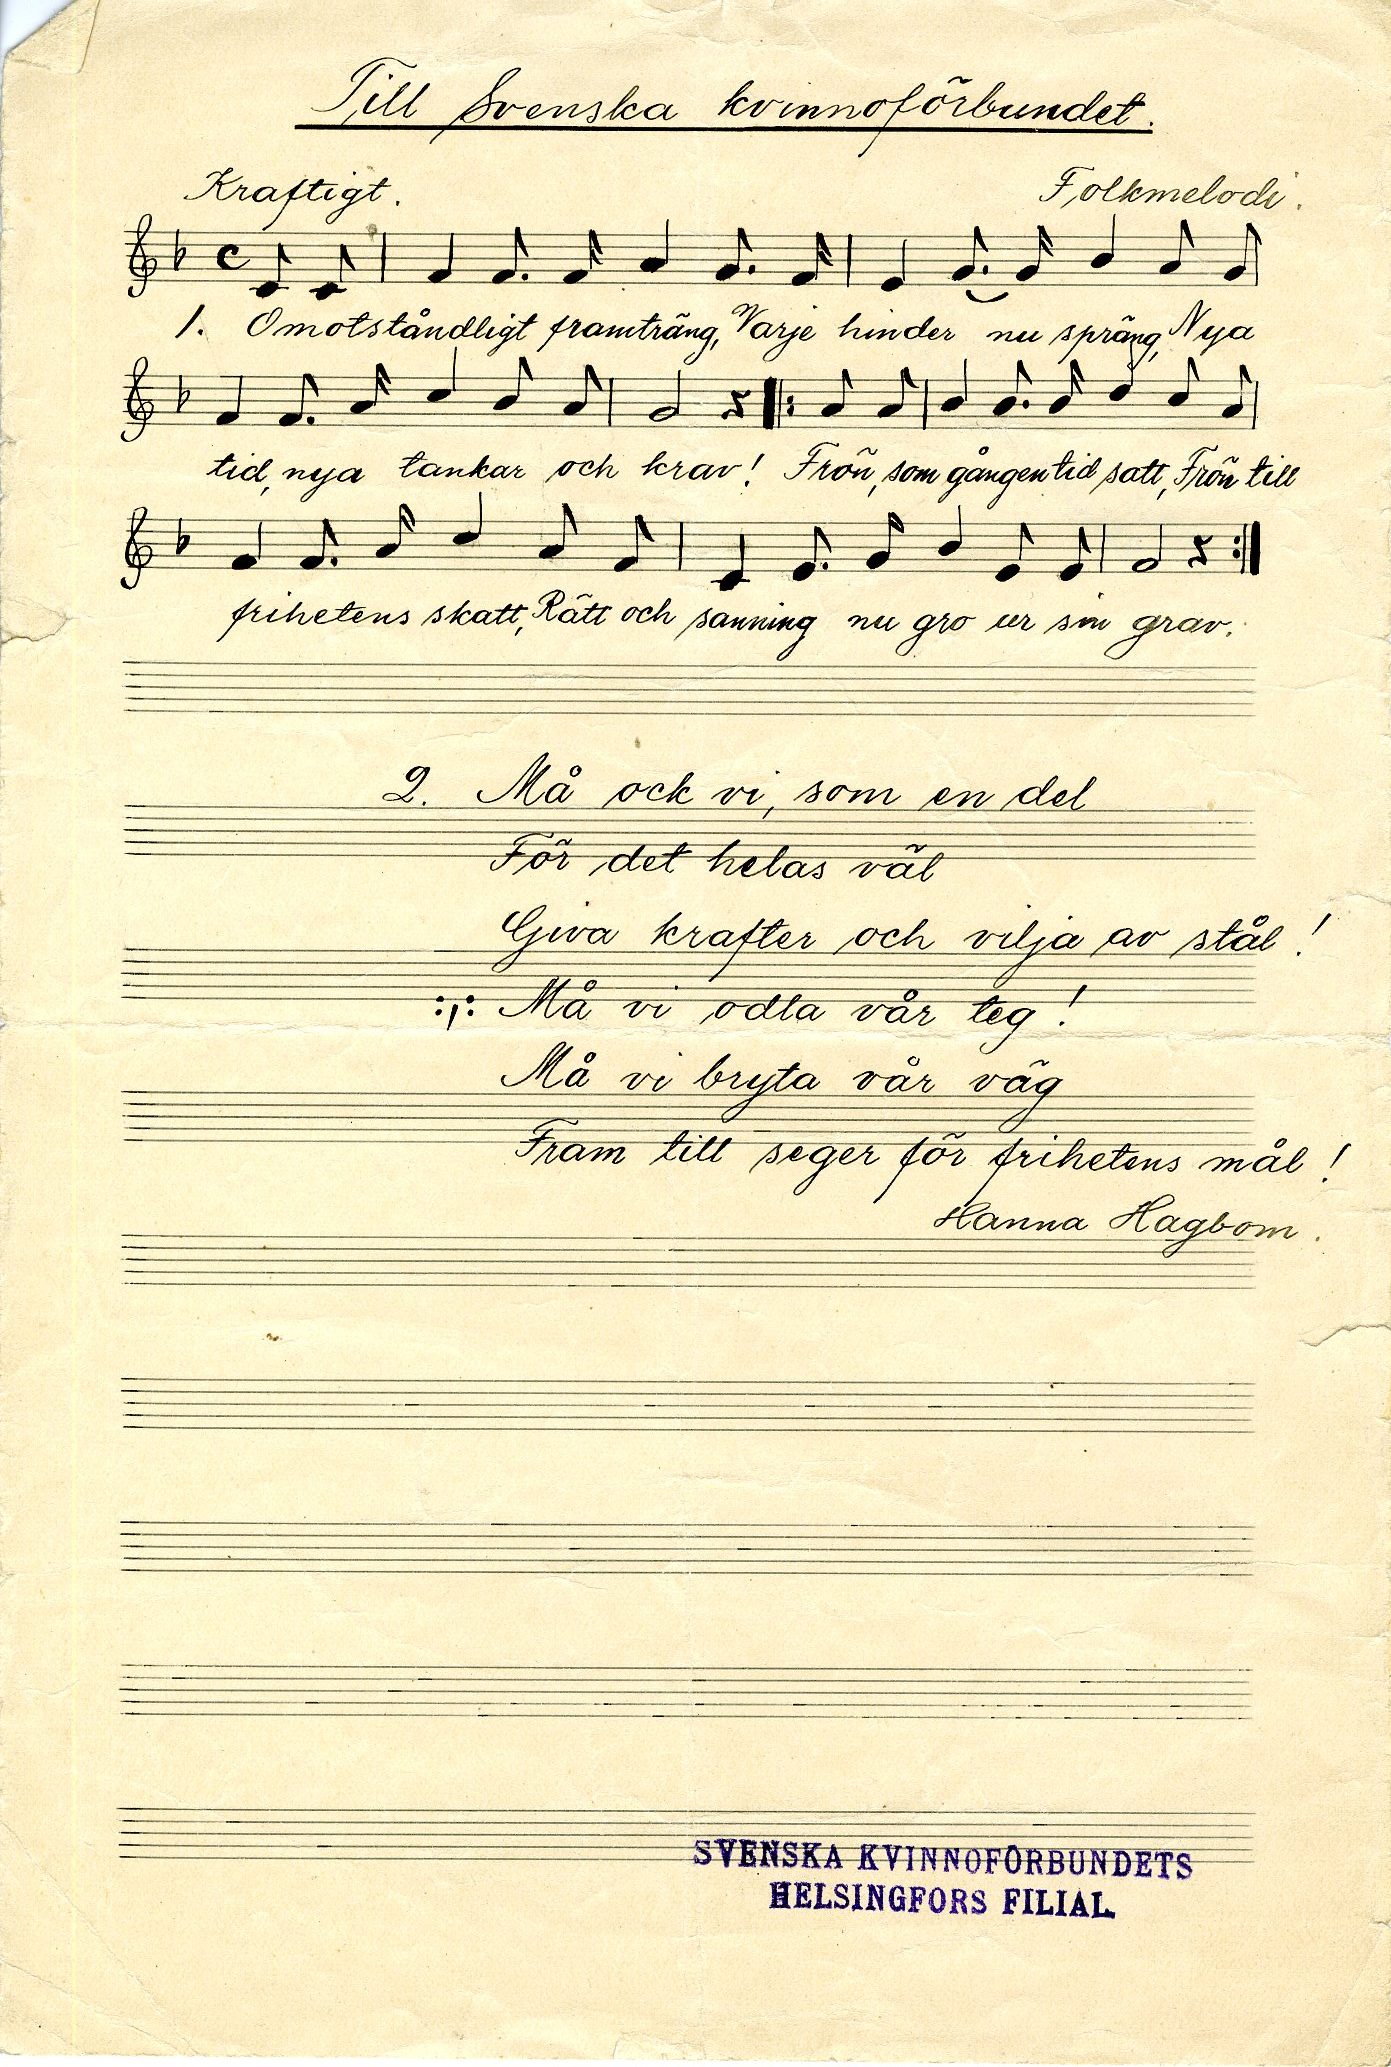 Till Svenska kvinnoförbundet.
Kraftigt. Folkmelodi.
1. Omotståndligt framträng, Varje hinder nu spräng, Nya
tid, nya tankar och krav! Frön, som gången tid satt, Frön till
frihetens skatt, Rätt och sanning nu gro ur sin grav.
2. Må ock vi, som en del
För det helas väl
Giva krafter och vilja av stål!
:,: Må vi odla vår teg!
Må vi bryta vår väg
Fram till seger för frihetens mål!
Hanna Hagbom.
SVENSKA KVINNOFÖRBUNDETS
HELSINGFORS FILIAL